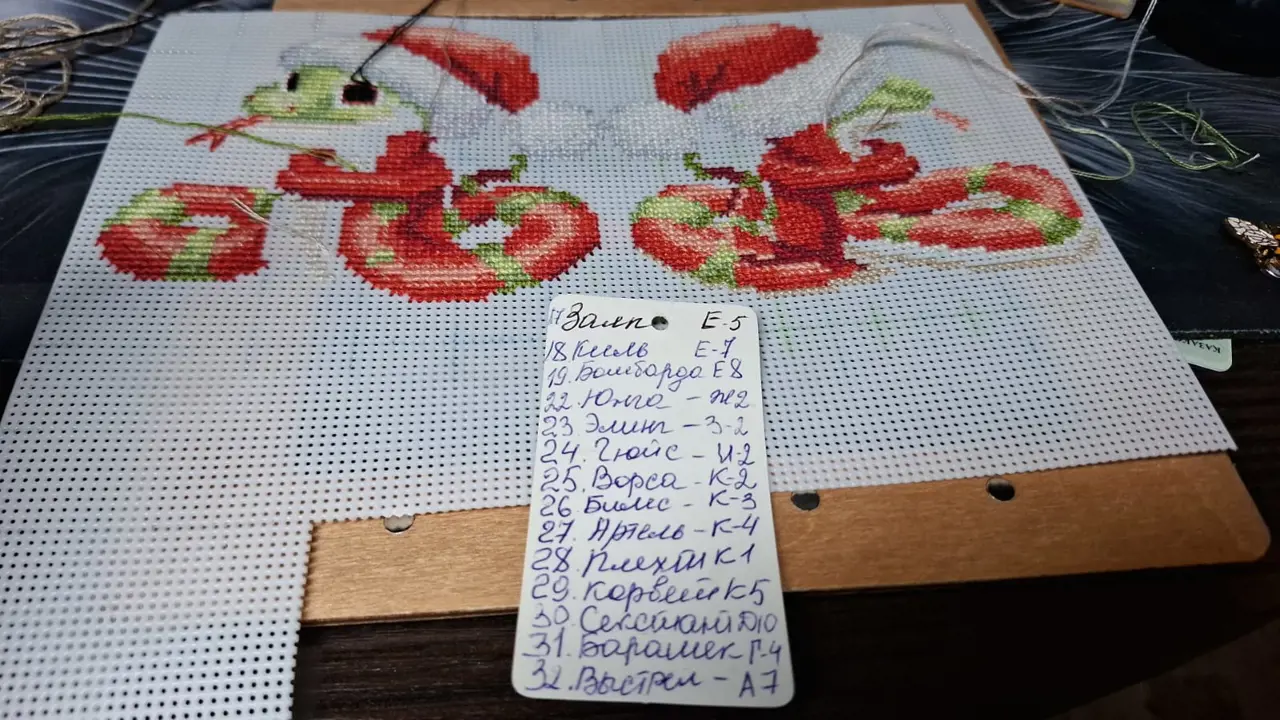 17 Залп Е-5
18 Киль Е-7
19. Бомбарда Е8
22. Юнга - Ж2
23. Элинг - З-2
24. Гюйс - И-2
25. Ворса - К-2
26. Бимс - К-3
27. Артель - К-4
28. Плехт К1
29. Корвет К5
30. Секстант Д10
31. Барашек Г-4
32. Выстрел - А7